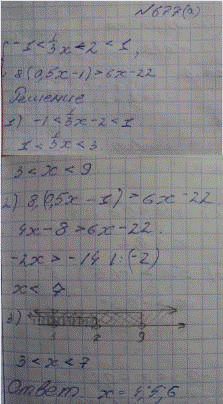 №677(а)
-1<⅓x-2<1,
8(0,5x-1)>6x-22
Решение
1) -1<⅓x-2<1
1<⅓x<3
3<x<9
2) 8(0,5x-1)>6x-22
4x-8>6x-22.
-2x>-14 |:(-2)
x<7
3)
3<x<7
Ответ x=4;5;6